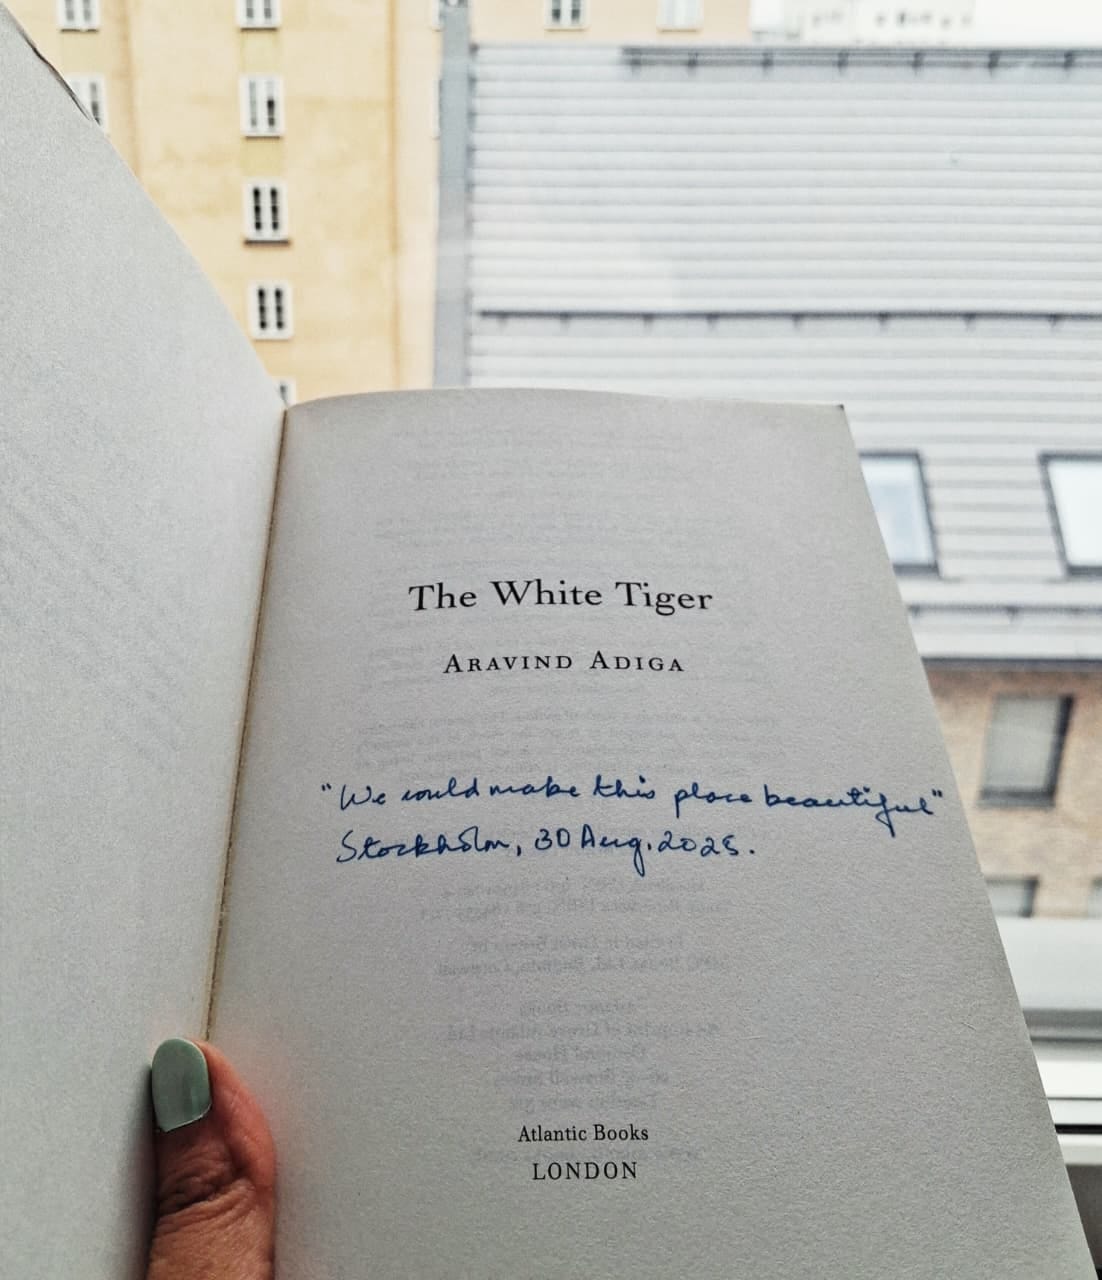 The White Tiger
ARAVIND ADIGA
"We could make this place beautiful"
Stockholm, 30 Aug. 2025.
Atlantic Books
LONDON